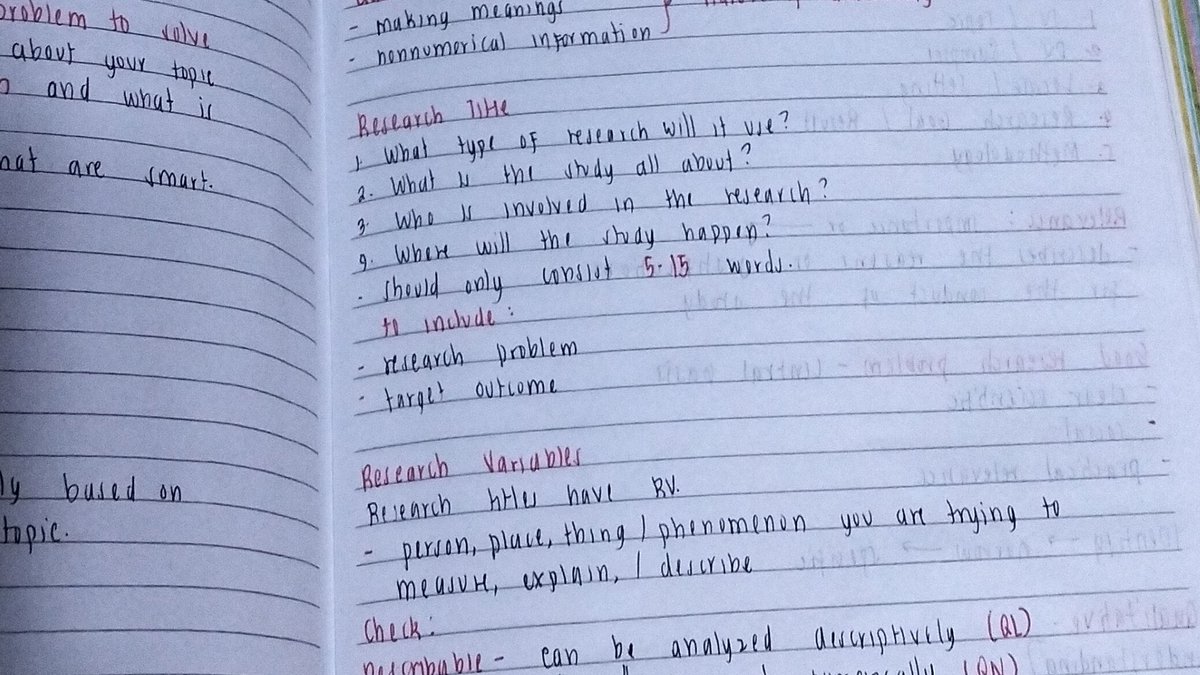 problem to solve
about your topic
and what is
hat are smart.
ly based on
topic.
- making meanings
- nonnumerical information
Research Title
1. What type of research will it use?
2. What is the study all about?
3. Who is involved in the research?
4. Where will the study happen?
- should only consist 5-15 words.
to include:
- research problem
- target outcome
Research Variables
Research titles have RV.
- person, place, thing / phenomenon you are trying to
measure, explain, / describe
Check:
Describable - can be analyzed descriptively (QL)
(QN)